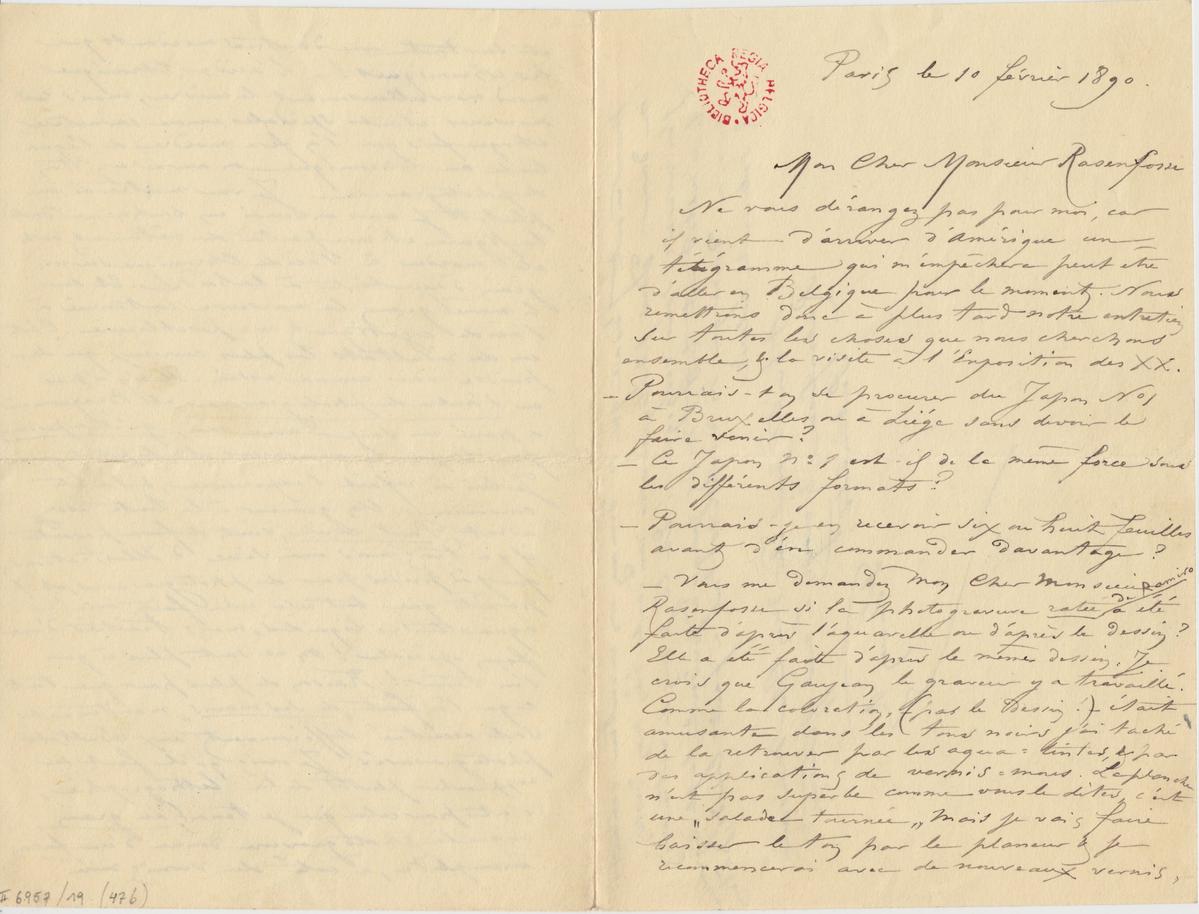 BIBLIOTHECA REGIA BELGICA
Paris le 10 février 1890.
Mon Cher Monsieur Rasenfosse
Ne vous dérangez pas pour moi, car
il vient d'arriver d'Amérique un
télégramme qui m'empêchera peut etre
d'aller en Belgique pour le moment. Nous
remettrons donc à plus tard notre entretien
sur toutes les choses que nous cherchons
ensemble, & la visite à l'Exposition des XX.
– Pourrais-t-on se procurer du Japon No 1
à Bruxelles ou à Liége sans devoir le
faire venir?
– Ce Japon No 1 est-il de la même force sous
les différents formats?
– Pourrais-je en recevoir six ou huit feuilles
avant d'en commander davantage?
– Vous me demandez Mon Cher Monsieur
Rasenfosse si la photogravure ratée de a été
faite d'après l'aquarelle ou d'après le dessin?
Elle a été faite d'après le même dessin. Je
crois que Gaujean le graveur y a travaillé.
Comme la coloration, (par le Dessin!) était
amusante dans les tons noirs j'ai taché
de la retrouver par les aqua=tintes, & par
des applications de vernis=mous. La planche
n'est pas superbe comme vous le dites, c'est
une „salade tournée„ Mais je vais faire
baisser le ton par le planeur & je
recommencerai avec de nouveaux vernis,
II 6957/19 (476)